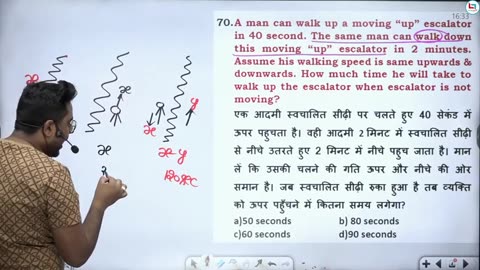 16:33
70.A man can walk up a moving "up" escalator
in 40 second. The same man can walk down
this moving "up" escalator in 2 minutes.
Assume his walking speed is same upwards &
downwards. How much time he will take to
walk up the escalator when escalator is not
moving?
एक आदमी स्वचालित सीढ़ी पर चलते हुए 40 सेकंड में
ऊपर पहुचता है। वही आदमी 2 मिनट में स्वचालित सीढ़ी
से नीचे उतरते हुए 2 मिनट में नीचे पहुच जाता है। मान
लें कि उसकी चलने की गति ऊपर और नीचे की ओर
समान है। जब स्वचालित सीढ़ी रुका हुआ है तब व्यक्ति
को ऊपर पहुँचने में कितना समय लगेगा?
a)50 seconds b) 80 seconds
c)60 seconds d)90 seconds
x
x
x y
x
x-y
120 sec